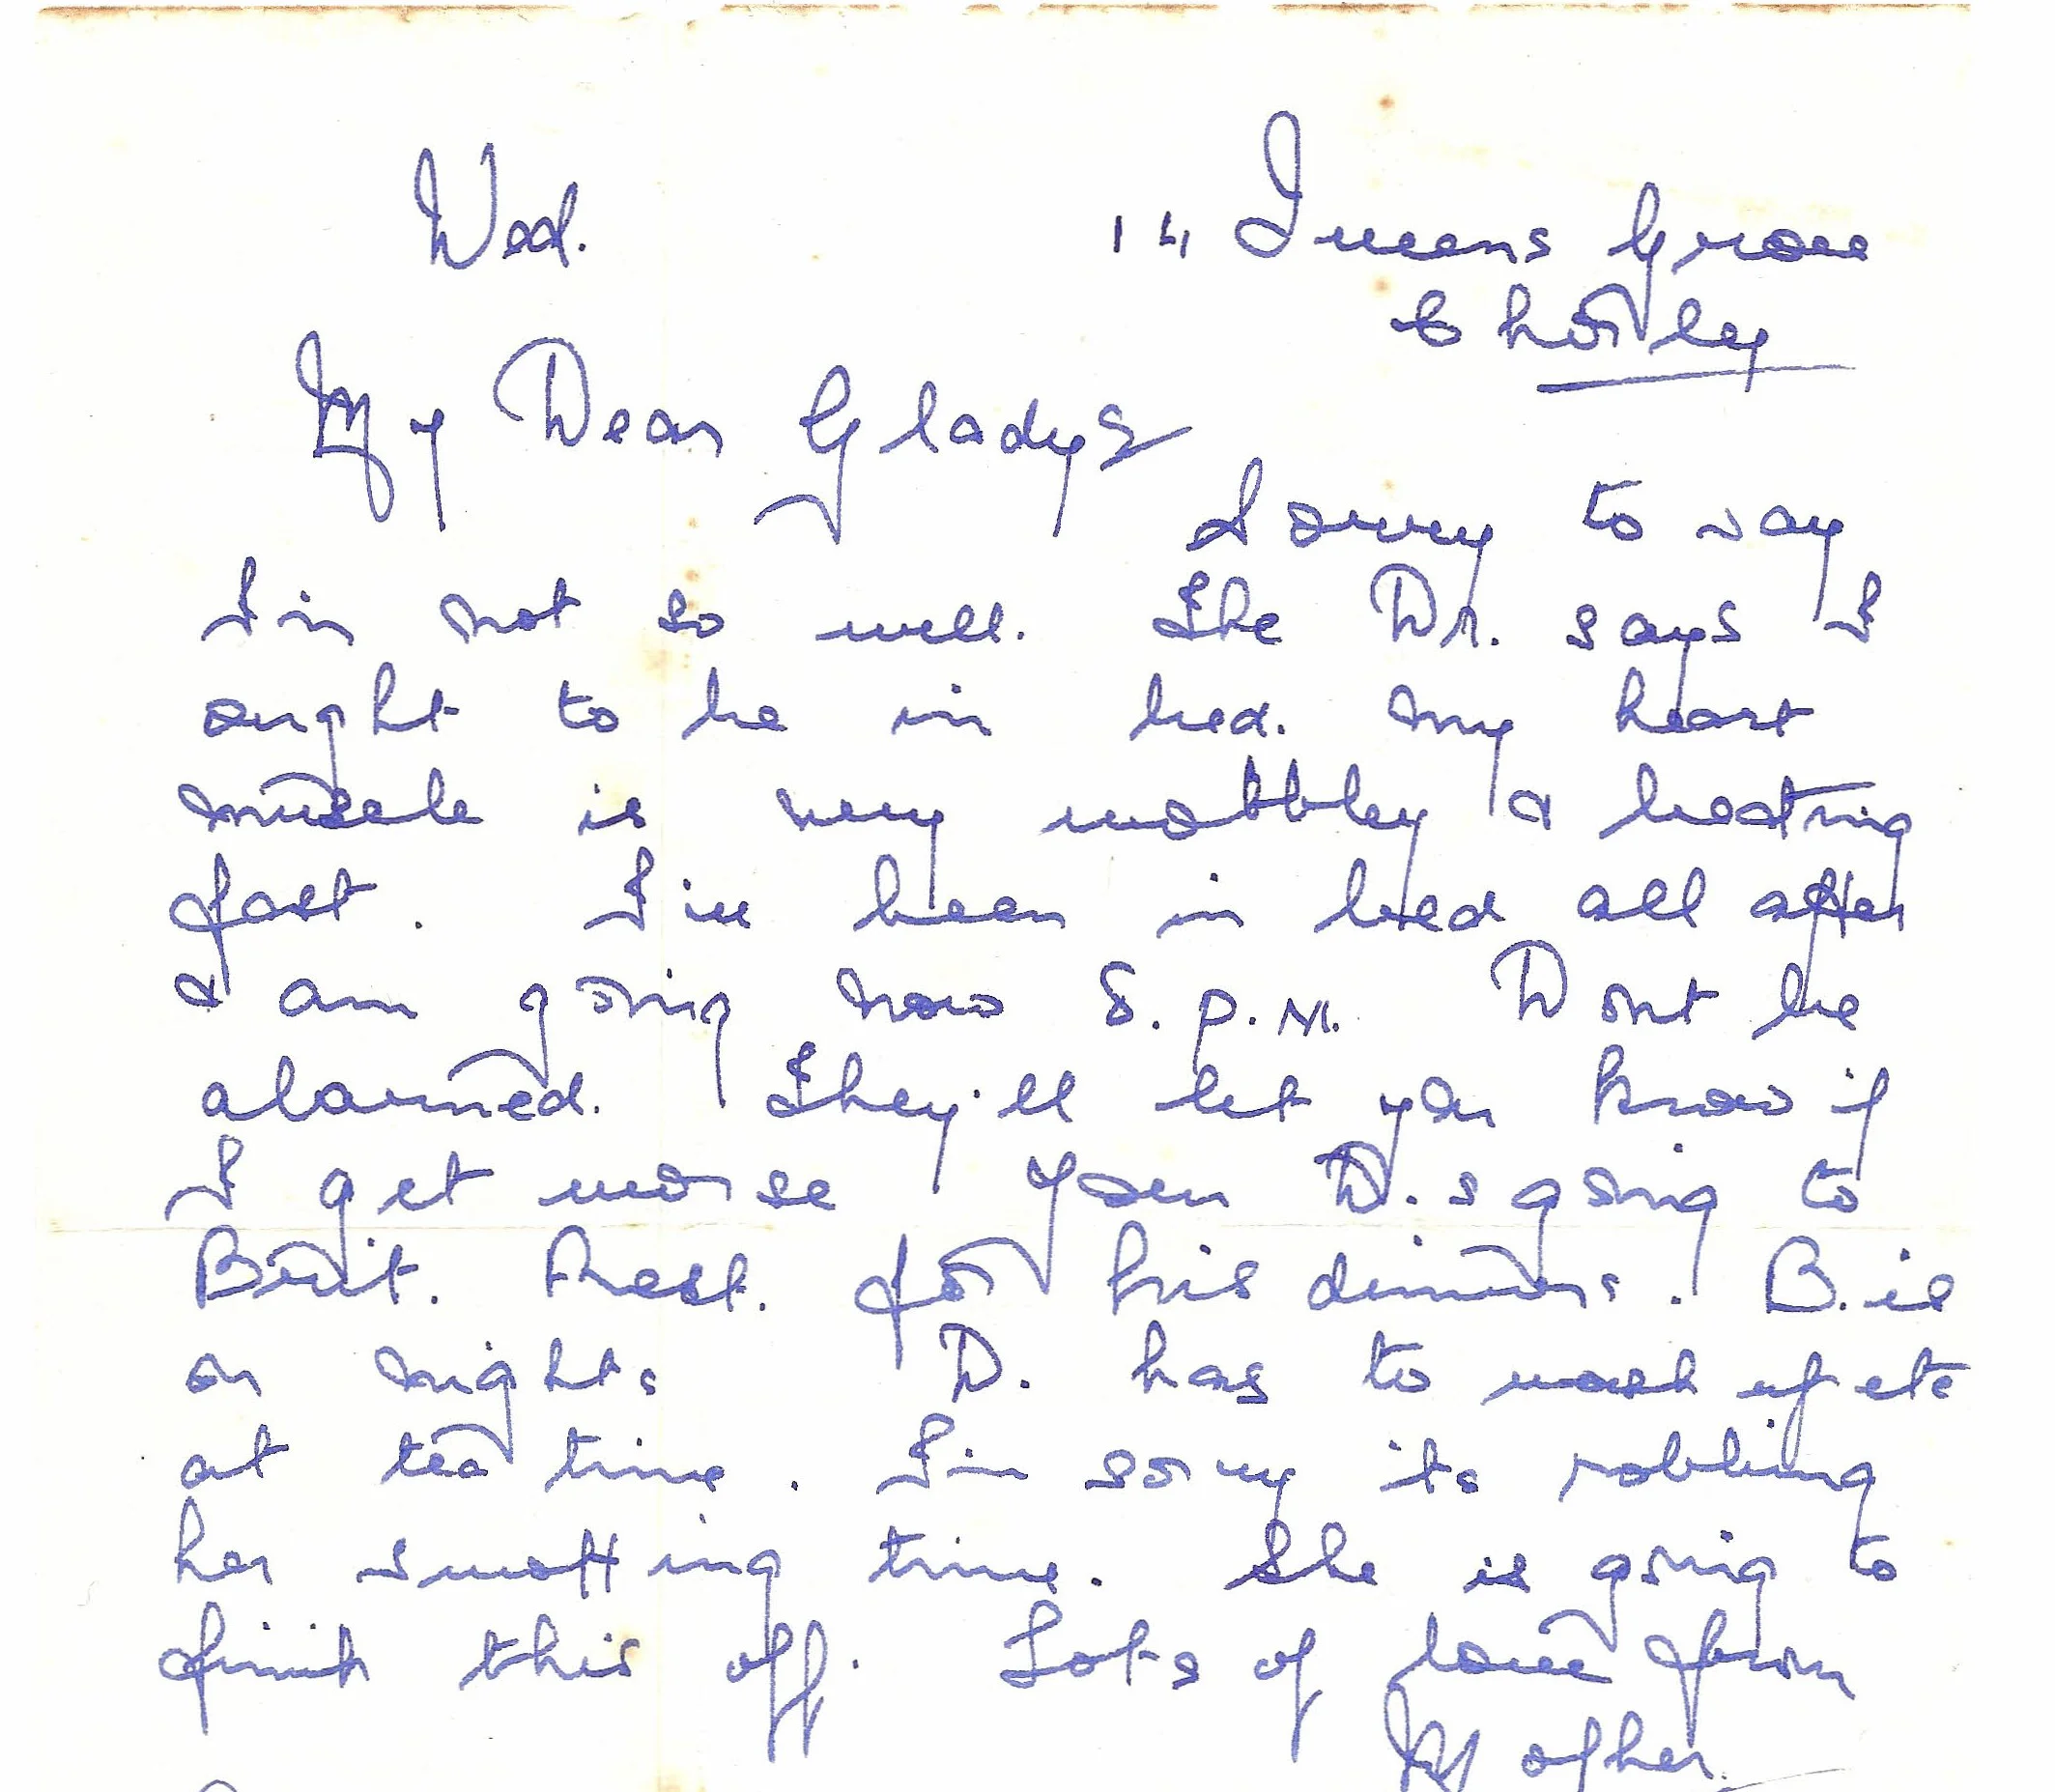 Wed. 14 Queens Grove
Chorley
My Dear Gladys
Sorry to say
I'm not so well. The Dr. says I
ought to be in bed. My heart
muscle is very wobbley & beating
fast. I've been in bed all after
& am going now 8. P.M. Dont be
alarmed. They'll let you know if
I get worse your D.s going to
Brit. Rest. for his dinners. B. is
on nights D. has to wash up etc
at tea time. I'm sorry its robbing
her swotting time. She is going to
finish this off. Lots of love from
Mother.